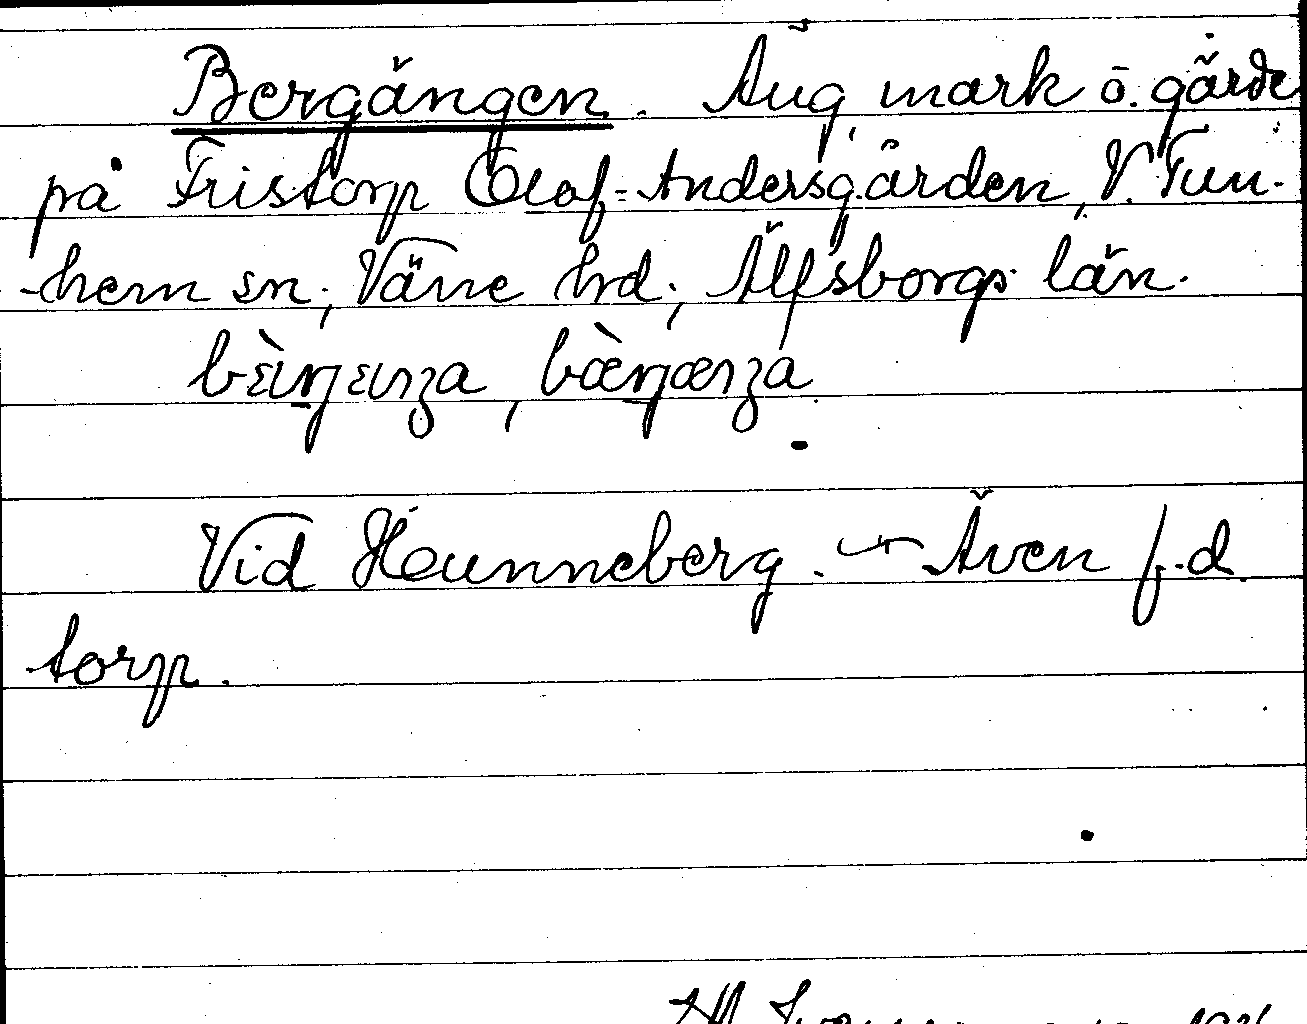 Bergängen. Äng, mark o. gärde
på Fristorp Olof-Andersgården, V. Tun-
hem sn; Väne hd; Älfsborgs län.
Vid Hunneberg. – Även f.d.
torp.